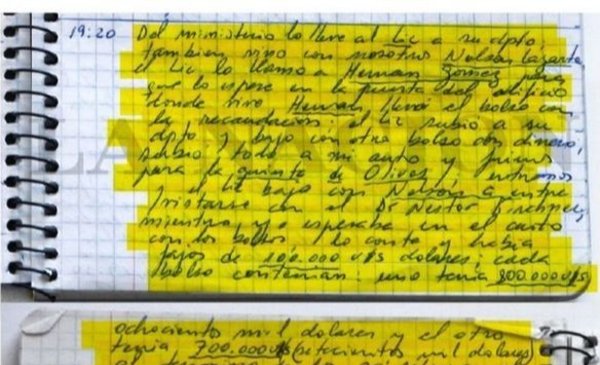 19:20 Del ministerio lo lleve al Lic a su dpto,
tambien vino con nosotros Nelson Lazarte
el Lic lo llamo a Hernan Gomez para
que lo espere en la puerta del edificio
donde vive, Hernan llevó el bolso con
la recaudacion; el Lic subio a su
dpto y bajo con otro bolso con dinero,
subio todo a mi auto y fuimos
para la quinta de Olivos, entramos
y el Lic bajo con Nelson a entre
vistarse con el Dr Nestor Kirchner
mientras yo esperaba en el auto
con los bolsos, lo conte y habia
fajos de 100.000 U$S dolares; cada
bolso contenian: uno tenia 800.000 U$S
ochocientos mil dolares y el otro
tenia 700.000 U$S (setecientos mil dolares)
LA NACION